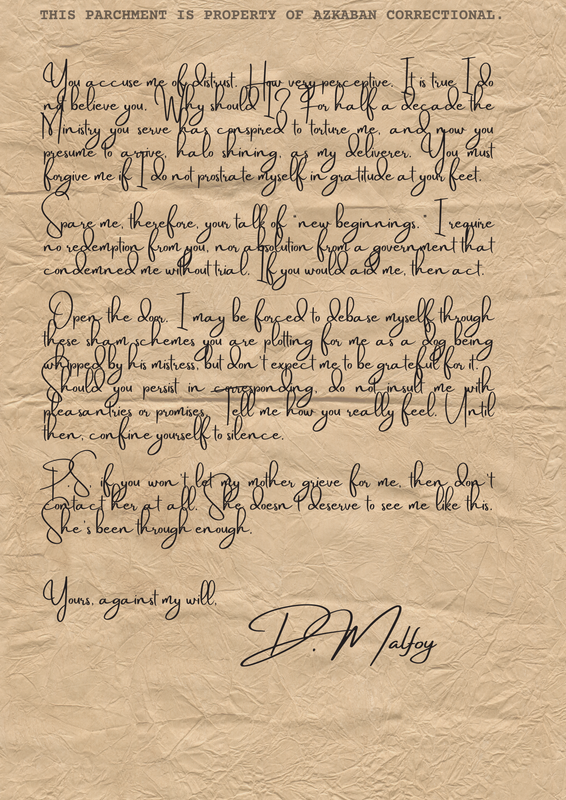 THIS PARCHMENT IS PROPERTY OF AZKABAN CORRECTIONAL.
You accuse me of distrust. How very perceptive. It is true I do
not believe you. Why should I? For half a decade the
Ministry you serve has conspired to torture me, and now you
presume to arrive, halo shining, as my deliverer. You must
forgive me if I do not prostrate myself in gratitude at your feet.
Spare me, therefore, your talk of "new beginnings." I require
no redemption from you, nor absolution from a government that
condemned me without trial. If you would aid me, then act.
Open the door. I may be forced to debase myself through
these sham schemes you are plotting for me as a dog being
whipped by his mistress, but don't expect me to be grateful for it.
Should you persist in corresponding, do not insult me with
pleasantries or promises. Tell me how you really feel. Until
then, confine yourself to silence.
P.S. if you won't let my mother grieve for me, then don't
contact her at all. She doesn't deserve to see me like this.
She's been through enough.
Yours, against my will,
D. Malfoy